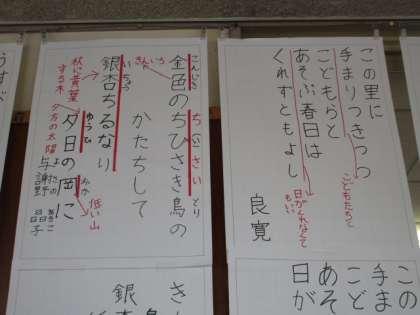 この里に
手まりつきつつ
こどもらと
こどもたちと
あそぶ春日は
くれずともよし
日がくれなくてもいい
良寛
こんじき
きんいろ
金色のちひさき鳥の
ちいさい
とり
かたちして
いちょう
銀杏ちるなり
秋に黄葉
する木
夕日の岡に
ゆうひ
おか
夕方の太陽
低い山
よさの
与謝野
あきこ
晶子
この
手ま
こど
あそ
日が
銀
うすべ